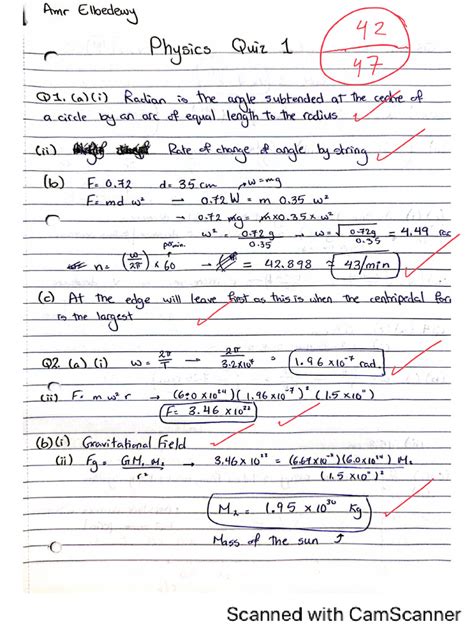 Amr Elbedewy
Physics Quiz 1
42
47
Q1. (a)(i) Radian is the angle subtended at the centre of
a circle by an arc of equal length to the radius
(ii) Rate of change of angle by string
(b) F = 0.72 d = 35 cm w = mg
F = md ω² → 0.72 W = m 0.35 ω²
→ 0.72 mg = m x 0.35 x ω²
ω² = 0.72g / 0.35 → ω = √0.72g / 0.35 = 4.49
n = (ω / 2π) x 60 → = 42.898 ≈ 43/min
(c) At the edge will leave first as this is when the centripedal
is the largest
Q2. (a) (i) ω = 2π / T → 2π / 3.2x10⁷ = 1.96 x10⁻⁷ rad.
(ii) F = m ω² r → (6.0 x10²⁴)(1.96 x10⁻⁷)² (1.5 x10¹¹)
F = 3.46 x10²²
(b)(i) Gravitational Field
(ii) Fg = GM₁ M₂ / r² → 3.46 x10²² = (6.67x10⁻¹¹)(6.0x10²⁴) M₂ / (1.5 x10¹¹)²
= 1.95 x10³⁰ Kg
Mass of the sun
Scanned with CamScanner